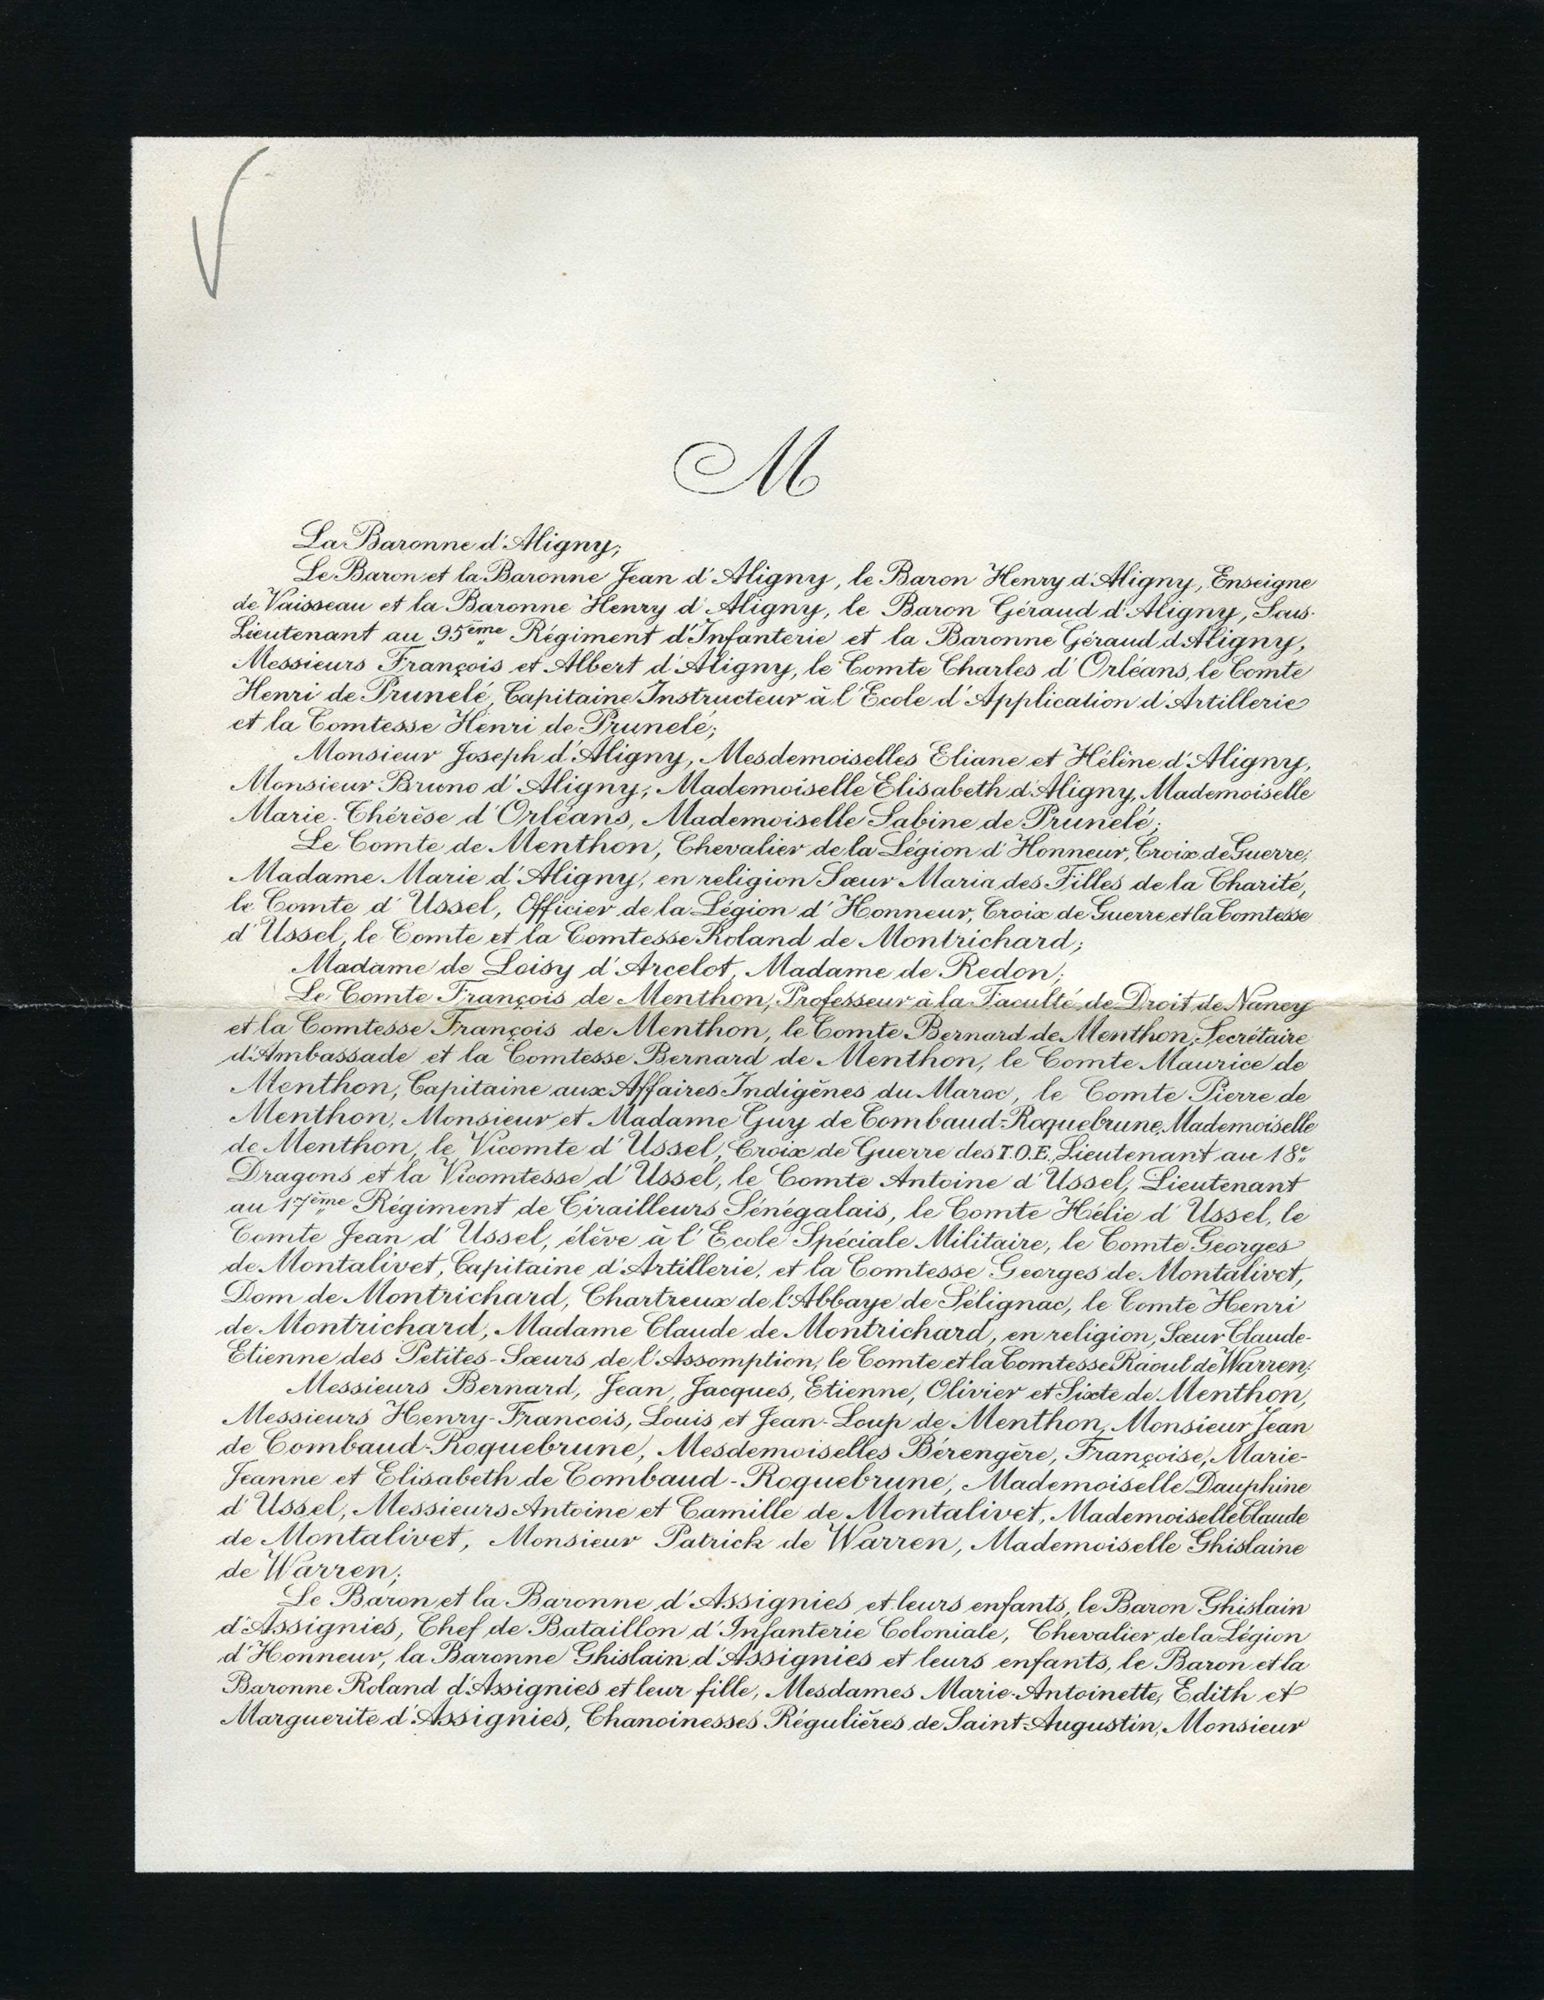 M
La Baronne d'Aligny;
Le Baron et la Baronne Jean d'Aligny, le Baron Henry d'Aligny, Enseigne
de Vaisseau et la Baronne Henry d'Aligny, le Baron Géraud d'Aligny, Sous-
Lieutenant au 95ème Régiment d'Infanterie et la Baronne Géraud d'Aligny,
Messieurs François et Albert d'Aligny, le Comte Charles d'Orléans, le Comte
Henri de Prunelé, Capitaine Instructeur à l'Ecole d'Application d'Artillerie
et la Comtesse Henri de Prunelé;
Monsieur Joseph d'Aligny, Mesdemoiselles Eliane et Hélène d'Aligny,
Monsieur Bruno d'Aligny, Mademoiselle Elisabeth d'Aligny, Mademoiselle
Marie-Thérèse d'Orléans, Mademoiselle Sabine de Prunelé;
Le Comte de Menthon, Chevalier de la Légion d'Honneur, Croix de Guerre,
Madame Marie d'Aligny, en religion Sœur Maria des Filles de la Charité,
le Comte d'Ussel, Officier de la Légion d'Honneur, Croix de Guerre et la Comtesse
d'Ussel, le Comte et la Comtesse Roland de Montrichard;
Madame de Loisy d'Arcelot, Madame de Redon;
Le Comte François de Menthon, Professeur à la Faculté de Droit de Nancy
et la Comtesse François de Menthon, le Comte Bernard de Menthon, Secrétaire
d'Ambassade et la Comtesse Bernard de Menthon, le Comte Maurice de
Menthon, Capitaine aux Affaires Indigènes du Maroc, le Comte Pierre de
Menthon, Monsieur et Madame Guy de Combaud-Roquebrune, Mademoiselle
de Menthon, le Vicomte d'Ussel, Croix de Guerre des T.O.E., Lieutenant au 18e
Dragons et la Vicomtesse d'Ussel, le Comte Antoine d'Ussel, Lieutenant
au 17ème Régiment de Tirailleurs Sénégalais, le Comte Hélie d'Ussel, le
Comte Jean d'Ussel, élève à l'Ecole Spéciale Militaire, le Comte Georges
de Montalivet, Capitaine d'Artillerie, et la Comtesse Georges de Montalivet,
Dom de Montrichard, Chartreux de l'Abbaye de Sélignac, le Comte Henri
de Montrichard, Madame Claude de Montrichard, en religion, Sœur Claude-
Etienne des Petites-Sœurs de l'Assomption, le Comte et la Comtesse Raoul de Warren;
Messieurs Bernard, Jean, Jacques, Etienne, Olivier et Sixte de Menthon,
Messieurs Henry-Francois, Louis et Jean-Loup de Menthon, Monsieur Jean
de Combaud-Roquebrune, Mesdemoiselles Bérengère, Françoise, Marie-
Jeanne et Elisabeth de Combaud-Roquebrune, Mademoiselle Dauphine
d'Ussel, Messieurs Antoine et Camille de Montalivet, Mademoiselle Claude
de Montalivet, Monsieur Patrick de Warren, Mademoiselle Ghislaine
de Warren;
Le Baron et la Baronne d'Assignies et leurs enfants, le Baron Ghislain
d'Assignies, Chef de Bataillon d'Infanterie Coloniale, Chevalier de la Légion
d'Honneur, la Baronne Ghislain d'Assignies et leurs enfants, le Baron et la
Baronne Roland d'Assignies et leur fille, Mesdames Marie-Antoinette, Edith et
Marguerite d'Assignies, Chanoinesses Régulières de Saint-Augustin, Monsieur